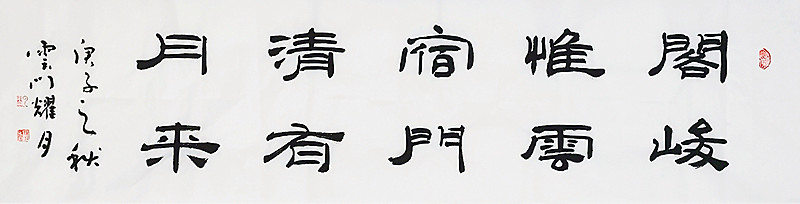 閣峻
惟雲
宿門
清有
月来
庚子之秋
雲門耀月